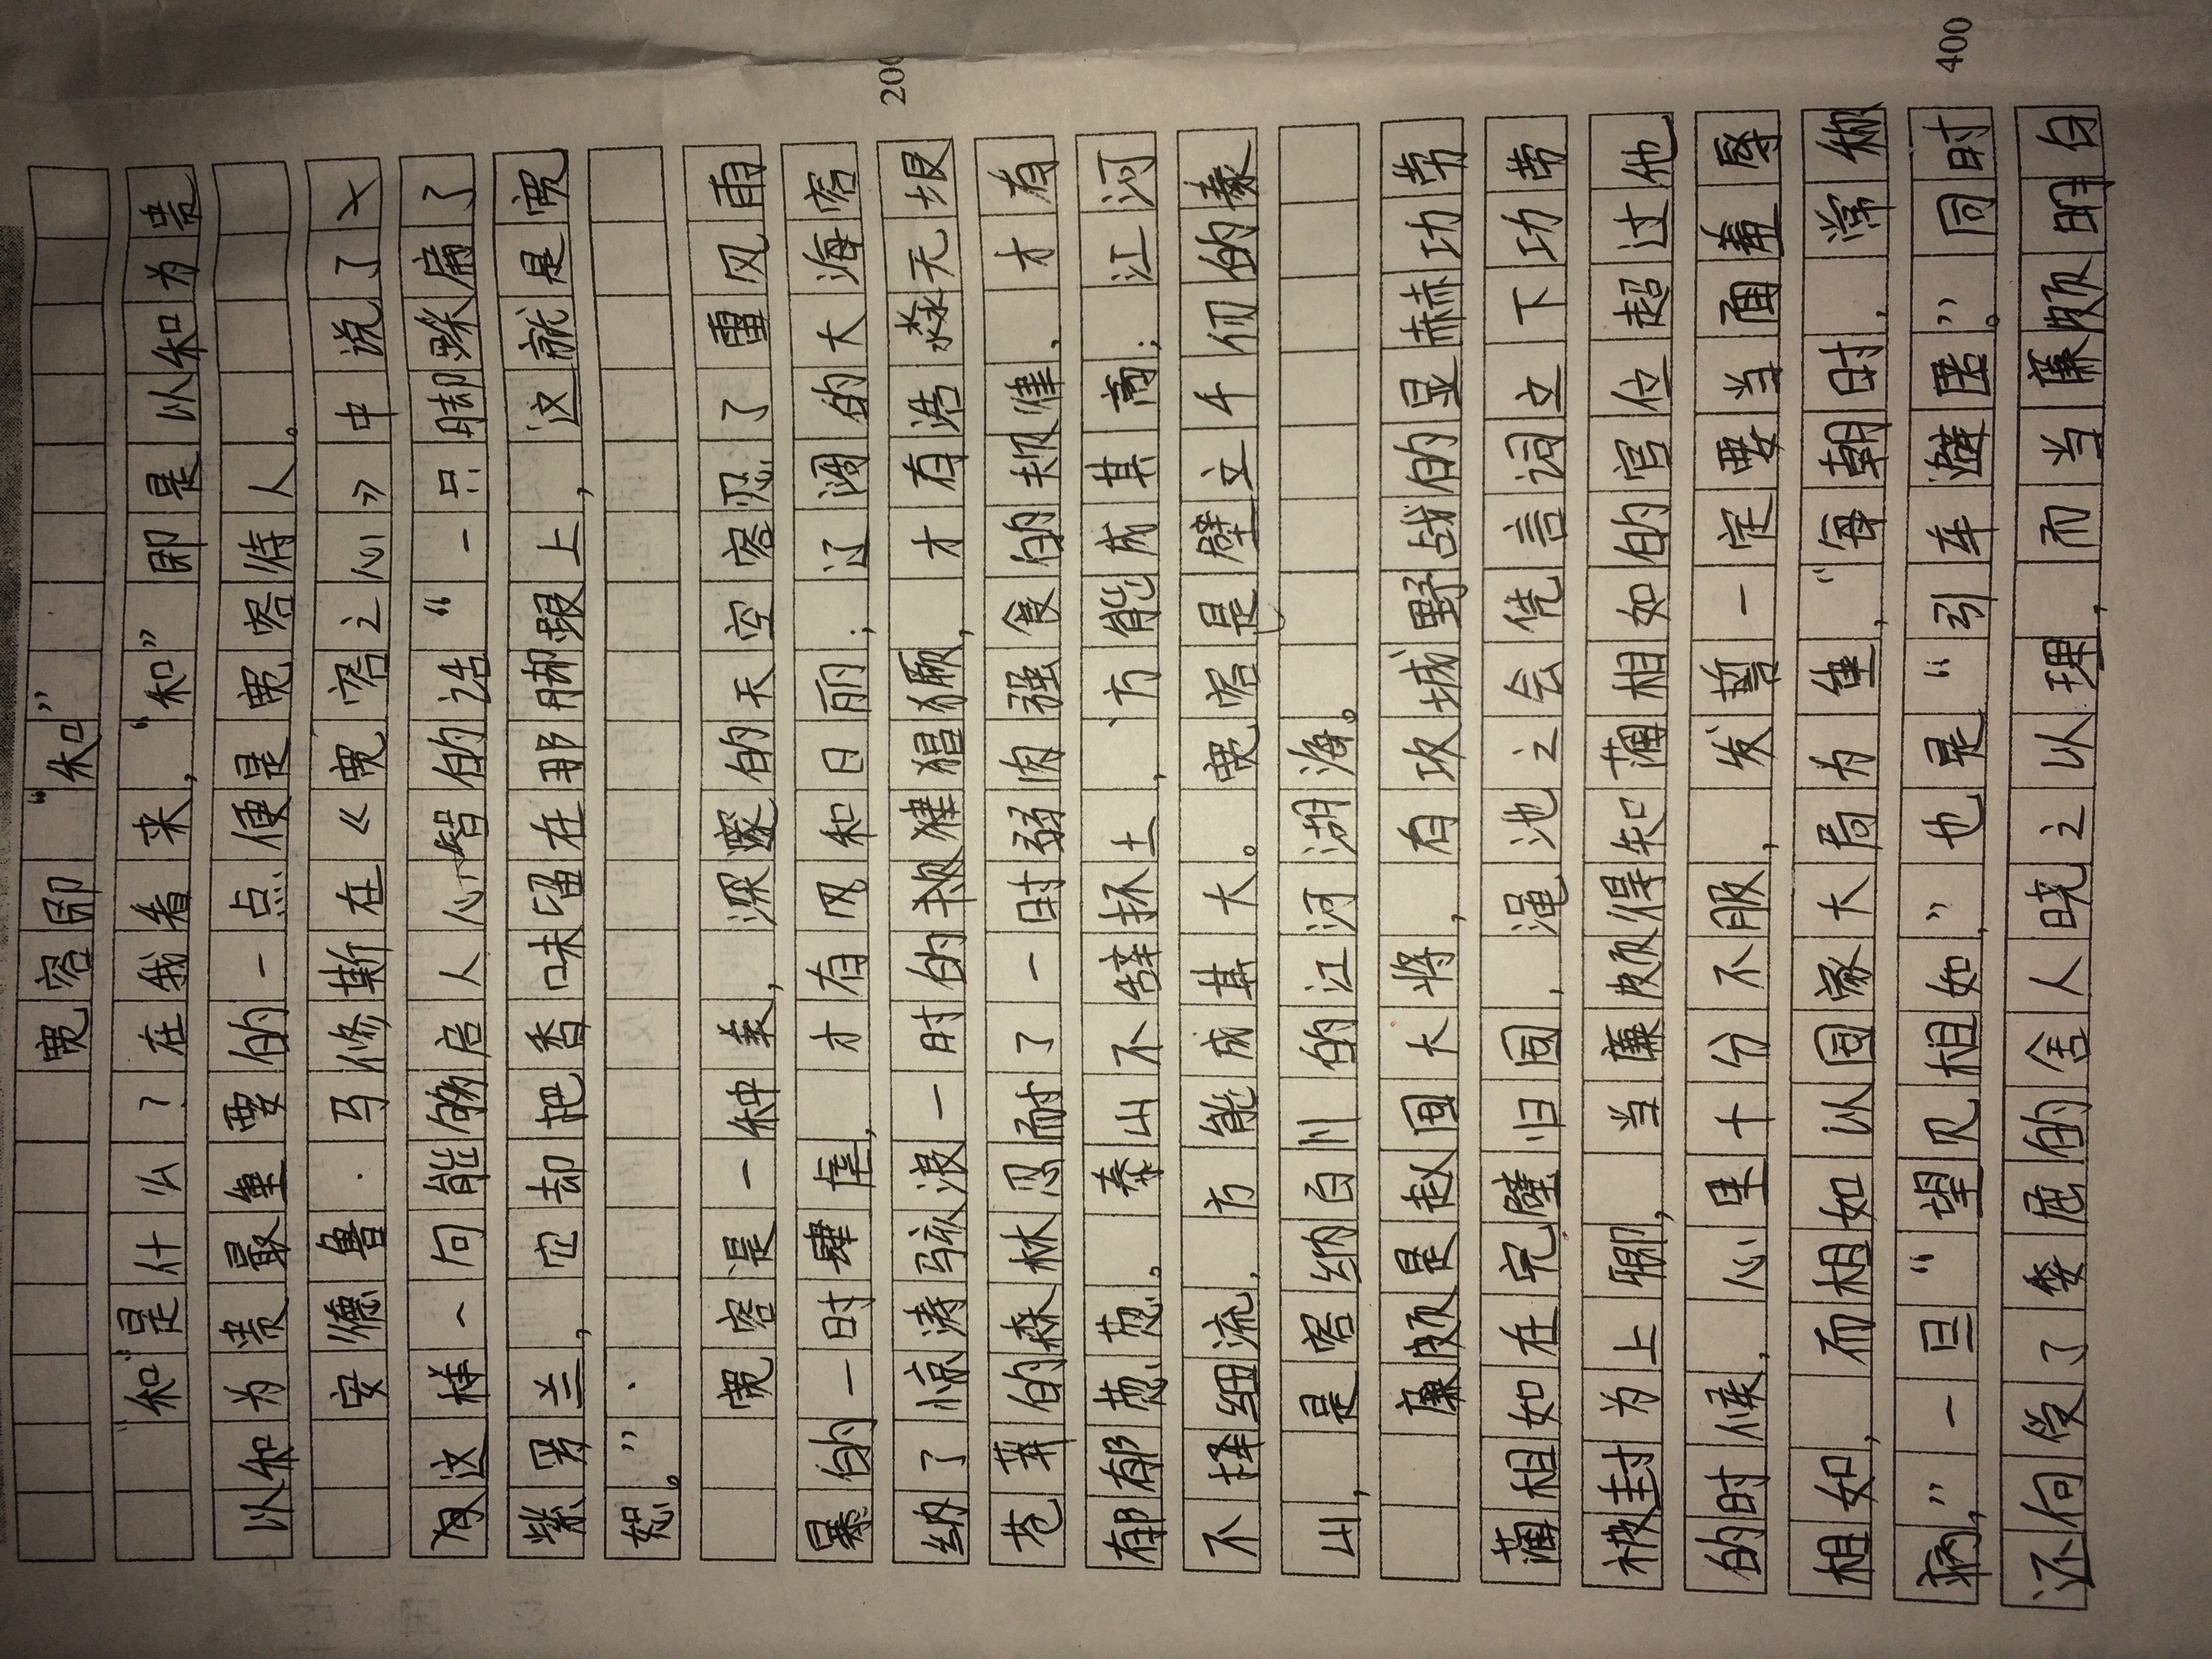 宽容即“和”
“和”是什么?在我看来,“和”即是以和为贵
以和为贵最重要的一点便是宽容待人。
安德鲁·马修斯在《宽容之心》中说了
有这样一句能够启人心智的话“一只脚踩扁了
紫罗兰,它却把香味留在那脚跟上,这就是宽
恕。”
宽容是一种美,深邃的天空容忍了雷风雨
暴的一时肆虐,才有风和日丽;辽阔的大海容
纳了惊涛骇浪一时的猖獗,才有浩淼无垠
苍莽的森林忍耐了一时弱肉强食的规律,才有
郁郁葱葱。泰山不辞抔土,方能成其高;江河
不择细流,方能成其大。宽容是壁立千仞的泰
山,是容纳百川的江河湖海。
廉颇是赵国大将,有攻城野战的显赫功劳
蔺相如在完璧归国,渑池之会凭言词立下功劳
被封为上卿,当廉颇得知蔺相如的官位超过他
的时候,心里十分不服,发誓一定要当面羞辱
相如,而相如以国家大局为重,“每朝时,常称
病,”一旦“望见相如,”也是“引车避匿。”同时
还向受了委屈的舍人晓之以理,而当廉颇明白
200
400